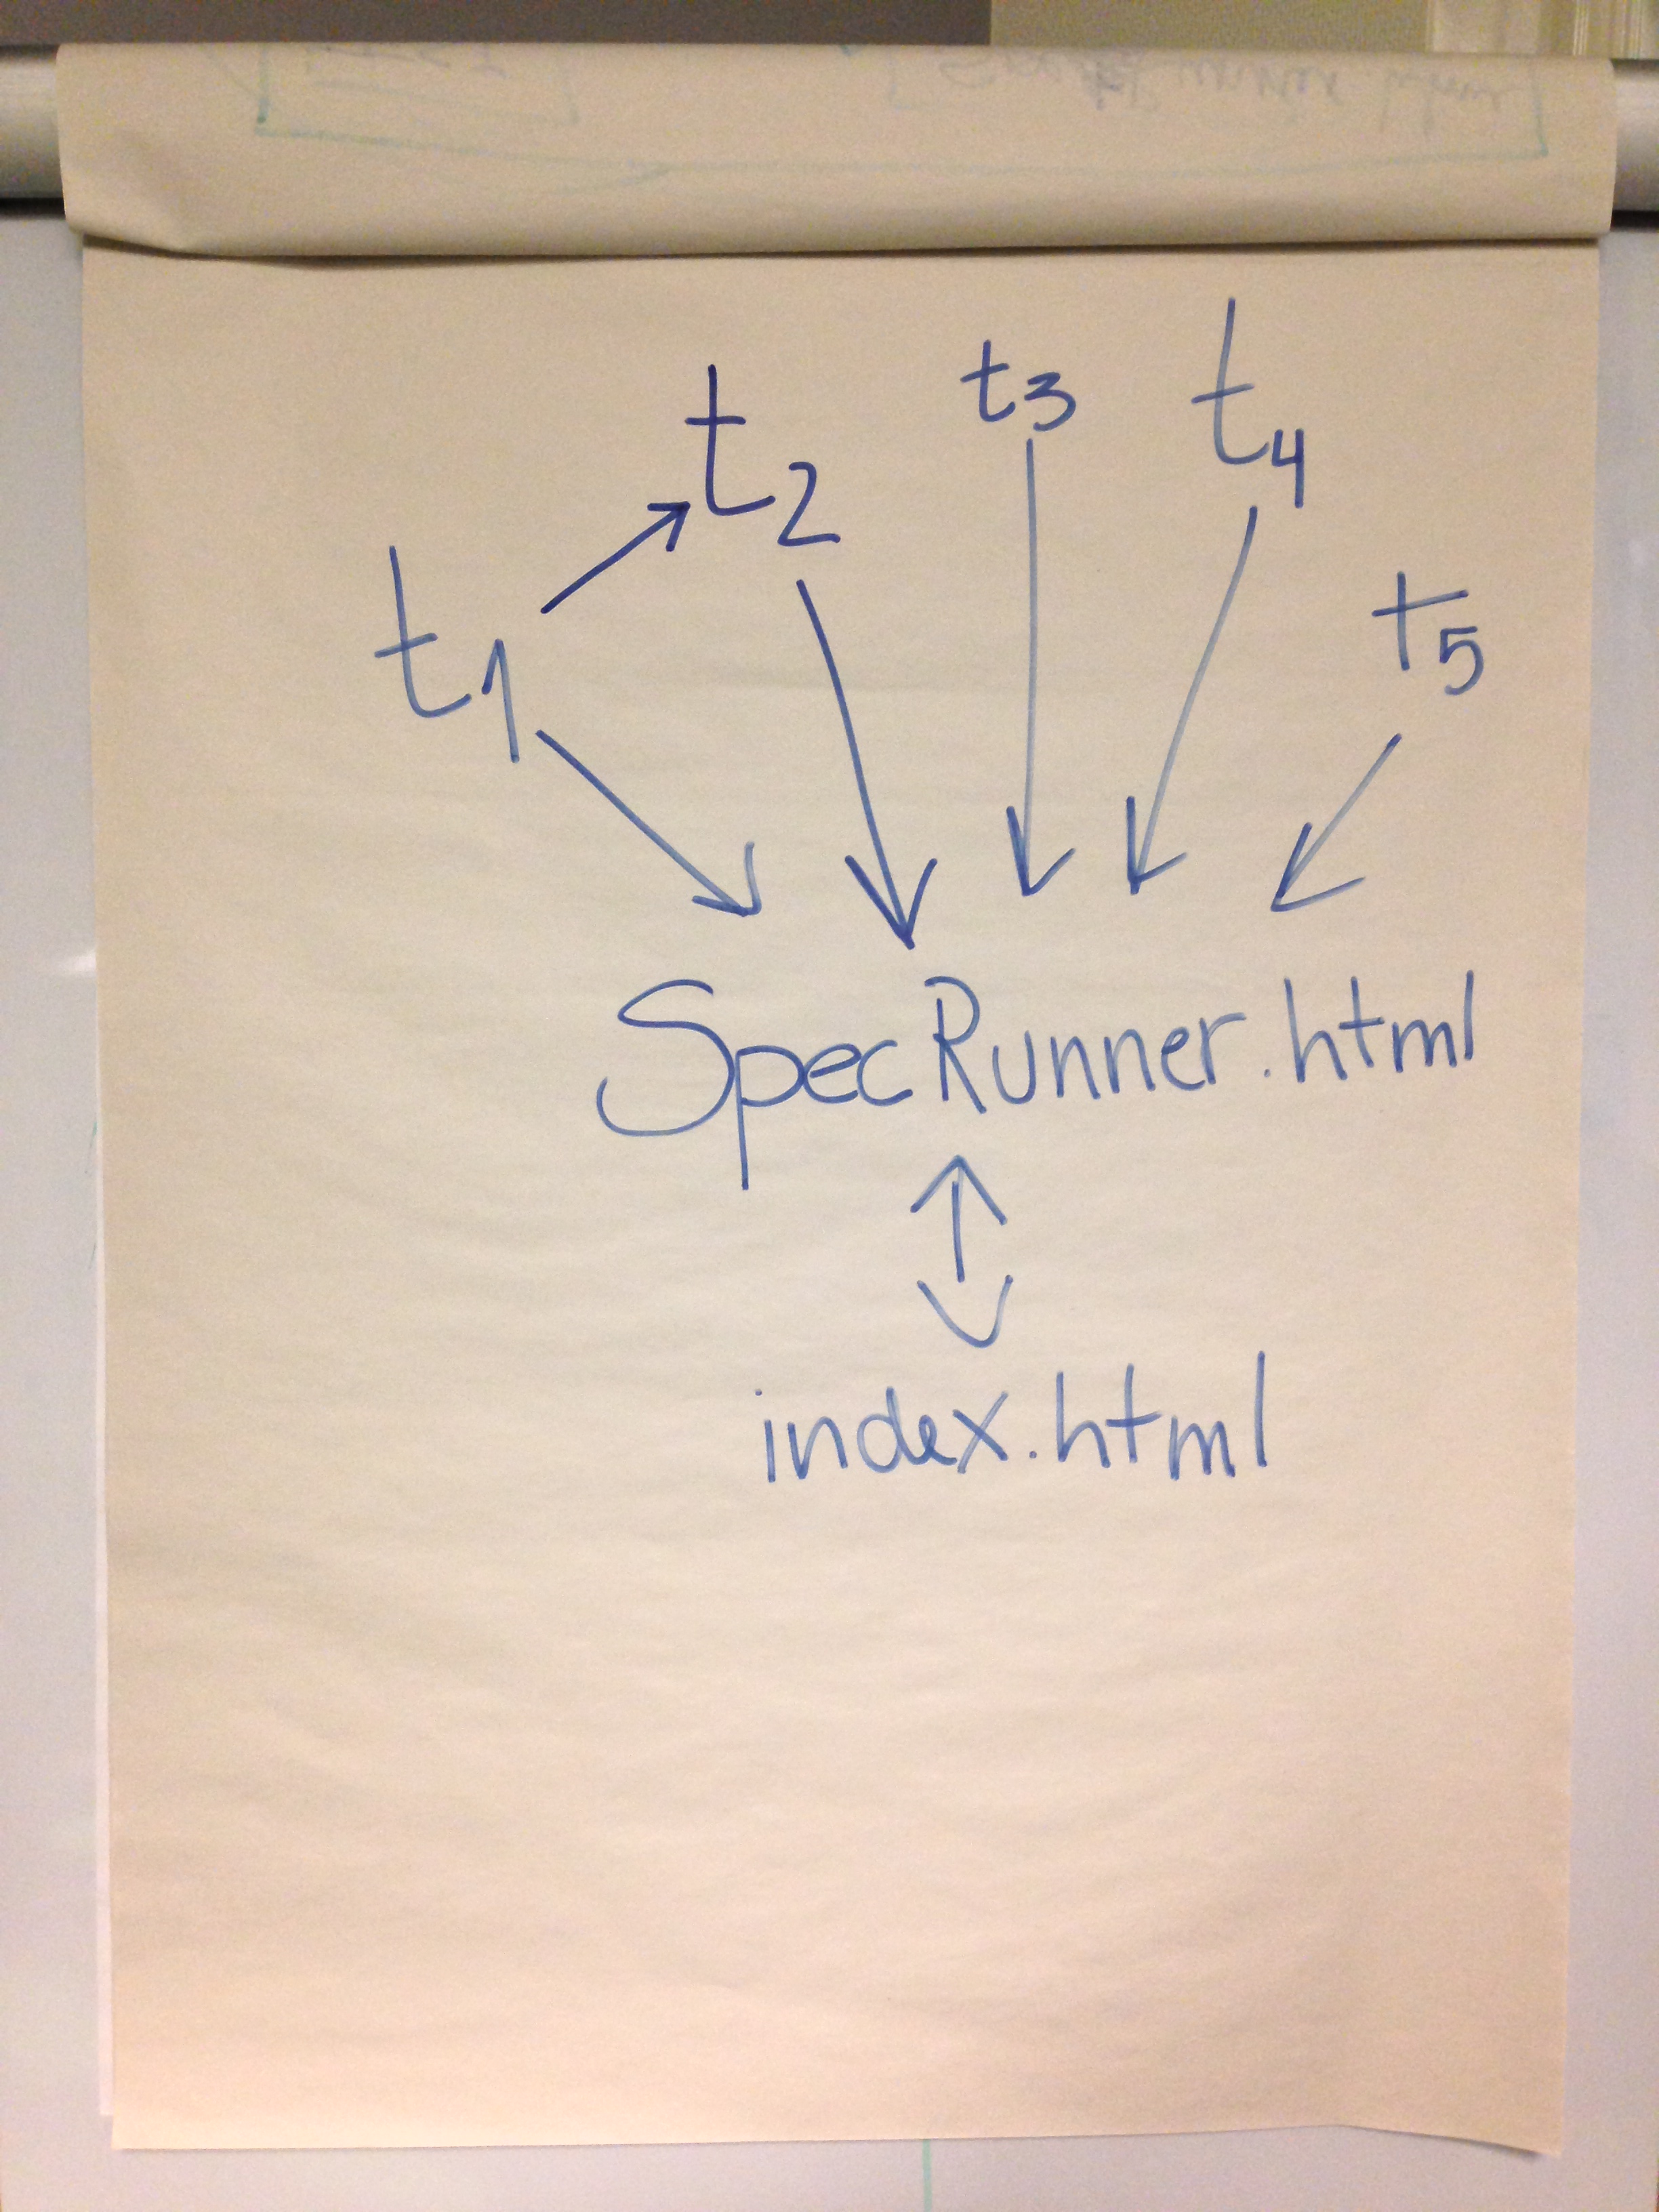 t1 t2 t3 t4 t5
SpecRunner.html
index.html